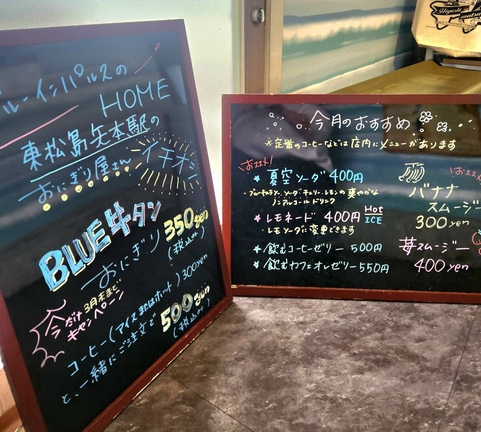 ブルーインパルスの
HOME
東松島矢本駅の
おにぎり屋さん
イチオシ
BLUE牛タン
おにぎり
350yen
(税込み)
今だけ3月末まで
キャンペーン
コーヒー(アイスまたはホット)300yen
と、一緒にご注文で
500yen
(税込み)
今月のおすすめ
※定番のコーヒーなどは店内にメニューがあります
おススメ!
★ 夏空ソーダ 400円
ノンアルコールドリンク
★ レモネード 400円 Hot ICE
・レモンソーダに変更できます
★ 飲むコーヒーゼリー 500円
★ 飲むカフェオレゼリー 550円
バナナ
スムージー
300yen
苺スムージー
400yen